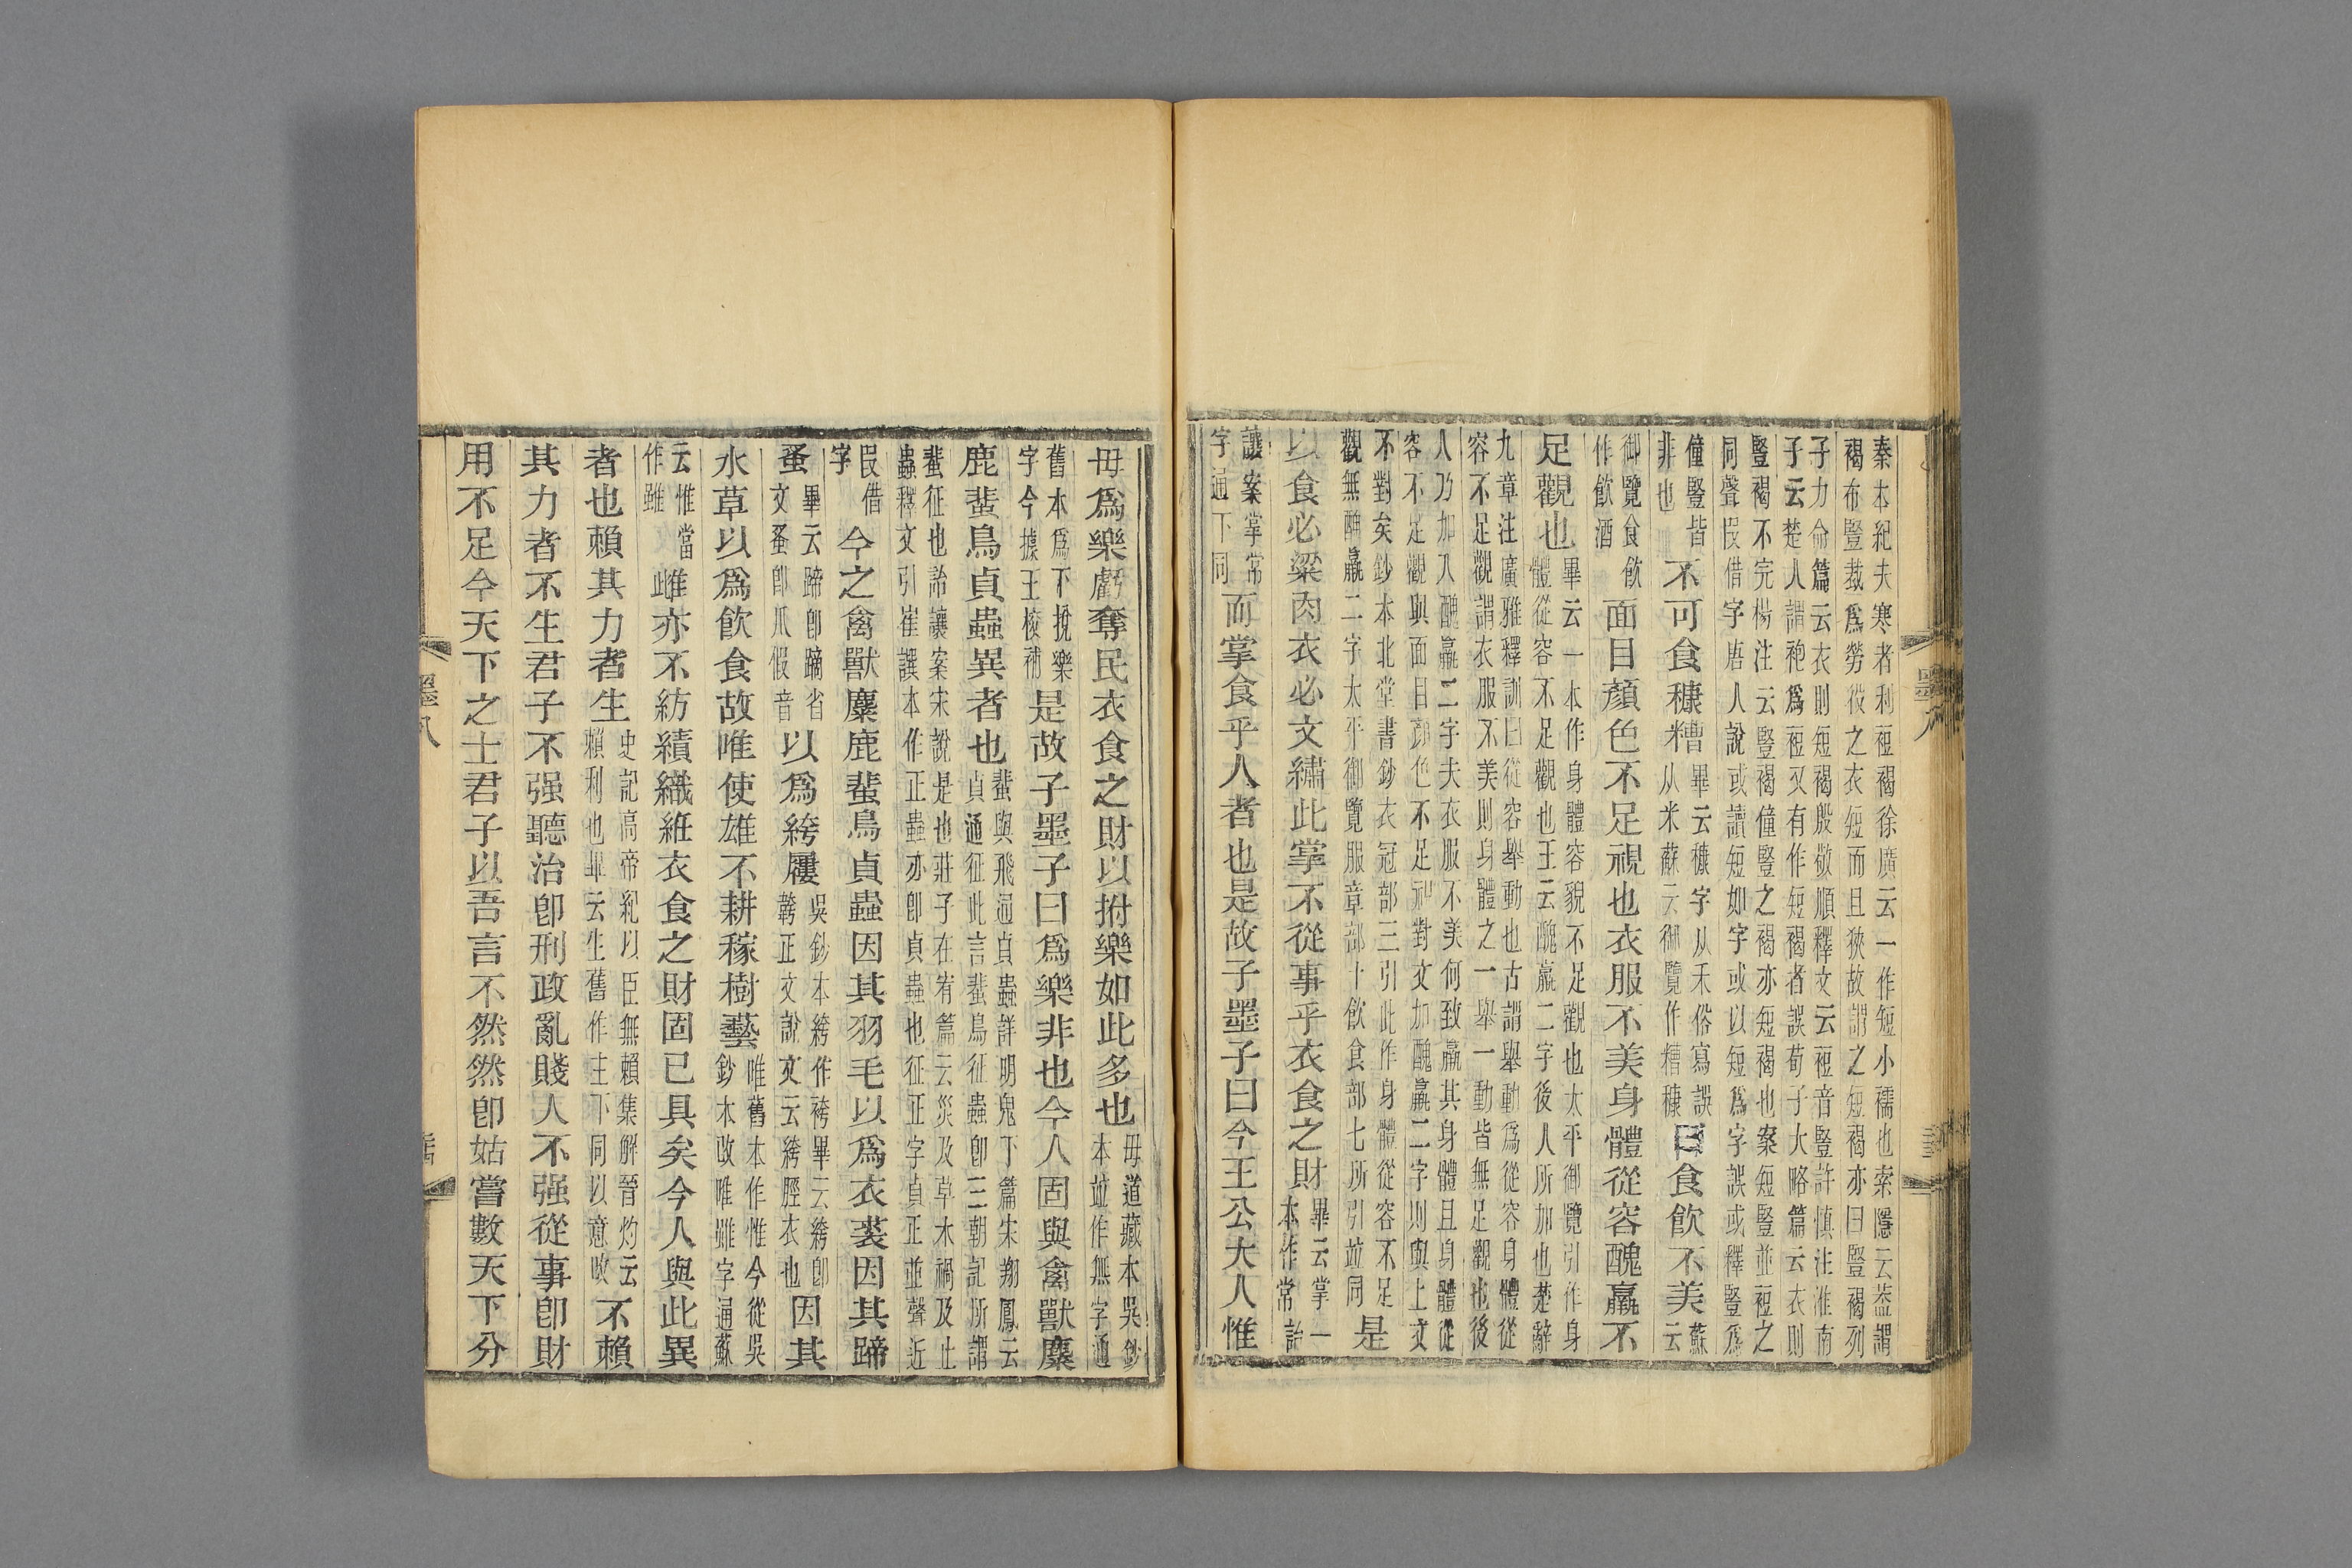 秦本紀夫寒者利裋褐徐廣云一作短小襦也索隱云蓋謂
褐布豎裁爲勞役之衣短而且狹故謂之短褐亦曰豎褐列
子力命篇云衣則短褐殷敬順釋文云裋音豎許慎注淮南
子云楚人謂袍爲裋又有作短褐者誤荀子大略篇云衣則
豎褐不完楊注云豎褐僮豎之褐亦短褐也案短豎並裋之
同聲叚借字唐人說或讀短如字或以短爲字誤或釋豎爲
僮豎皆非也不可食糠糟畢云穅字从禾俗寫誤从米蘇云御覽作糟糠曰食飲不美蘇云
御覽食飲作飲酒面目顏色不足視也衣服不美身體從容醜羸不
足觀也畢云一本作身體容貌不足觀也太平御覽引作身體從容不足觀也王云醜羸二字後人所加也楚辭
九章注廣雅釋訓曰從容舉動也古謂舉動爲從容身體從
容不足觀謂衣服不美則身體之一舉一動皆無足觀也後
人乃加入醜羸二字夫衣服不美何致羸其身體且身體從
容不足觀與面目顏色不足視對文加醜羸二字則與上文
不對矣鈔本北堂書鈔衣冠部三引此作身體從容不足觀無醜羸二字太平御覽服章部十飲食部七所引並同是
以食必粱肉衣必文繡此掌不從事乎衣食之財畢云掌一本作常詒
讓案掌常字通下同而掌食乎人者也是故子墨子曰今王公大人惟
毋爲樂虧奪民衣食之財以拊樂如此多也毋道藏本吳鈔本竝作無字通
舊本爲下挩樂字今據王校補是故子墨子曰爲樂非也今人固與禽獸麋
鹿蜚鳥貞蟲異者也蜚與飛通貞蟲詳明鬼下篇宋翔鳳云貞通征此言蜚鳥征蟲卽三朝記所謂
蜚征也詒讓案宋說是也莊子在宥篇云災及草木禍及止
蟲釋文引崔譔本作正蟲亦卽貞蟲也征正字貞正並聲近
叚借字今之禽獸麋鹿蜚鳥貞蟲因其羽毛以爲衣裘因其蹄
蚤畢云蹄卽蹏省文蚤卽爪假音以爲絝屨吳鈔本絝作袴畢云絝卽䩭正文說文云絝脛衣也因其
水草以爲飲食故唯使雄不耕稼樹藝唯舊本作惟今從吳鈔本改唯雖字通蘇
云惟當作雖雌亦不紡績織紝衣食之財固已具矣今人與此異
者也賴其力者生史記高帝紀以臣無賴集解晉灼云賴利也畢云生舊作主下同以意改不賴
其力者不生君子不强聽治卽刑政亂賤人不强從事卽財
用不足今天下之士君子以吾言不然然卽姑嘗數天下分
墨八
墨八